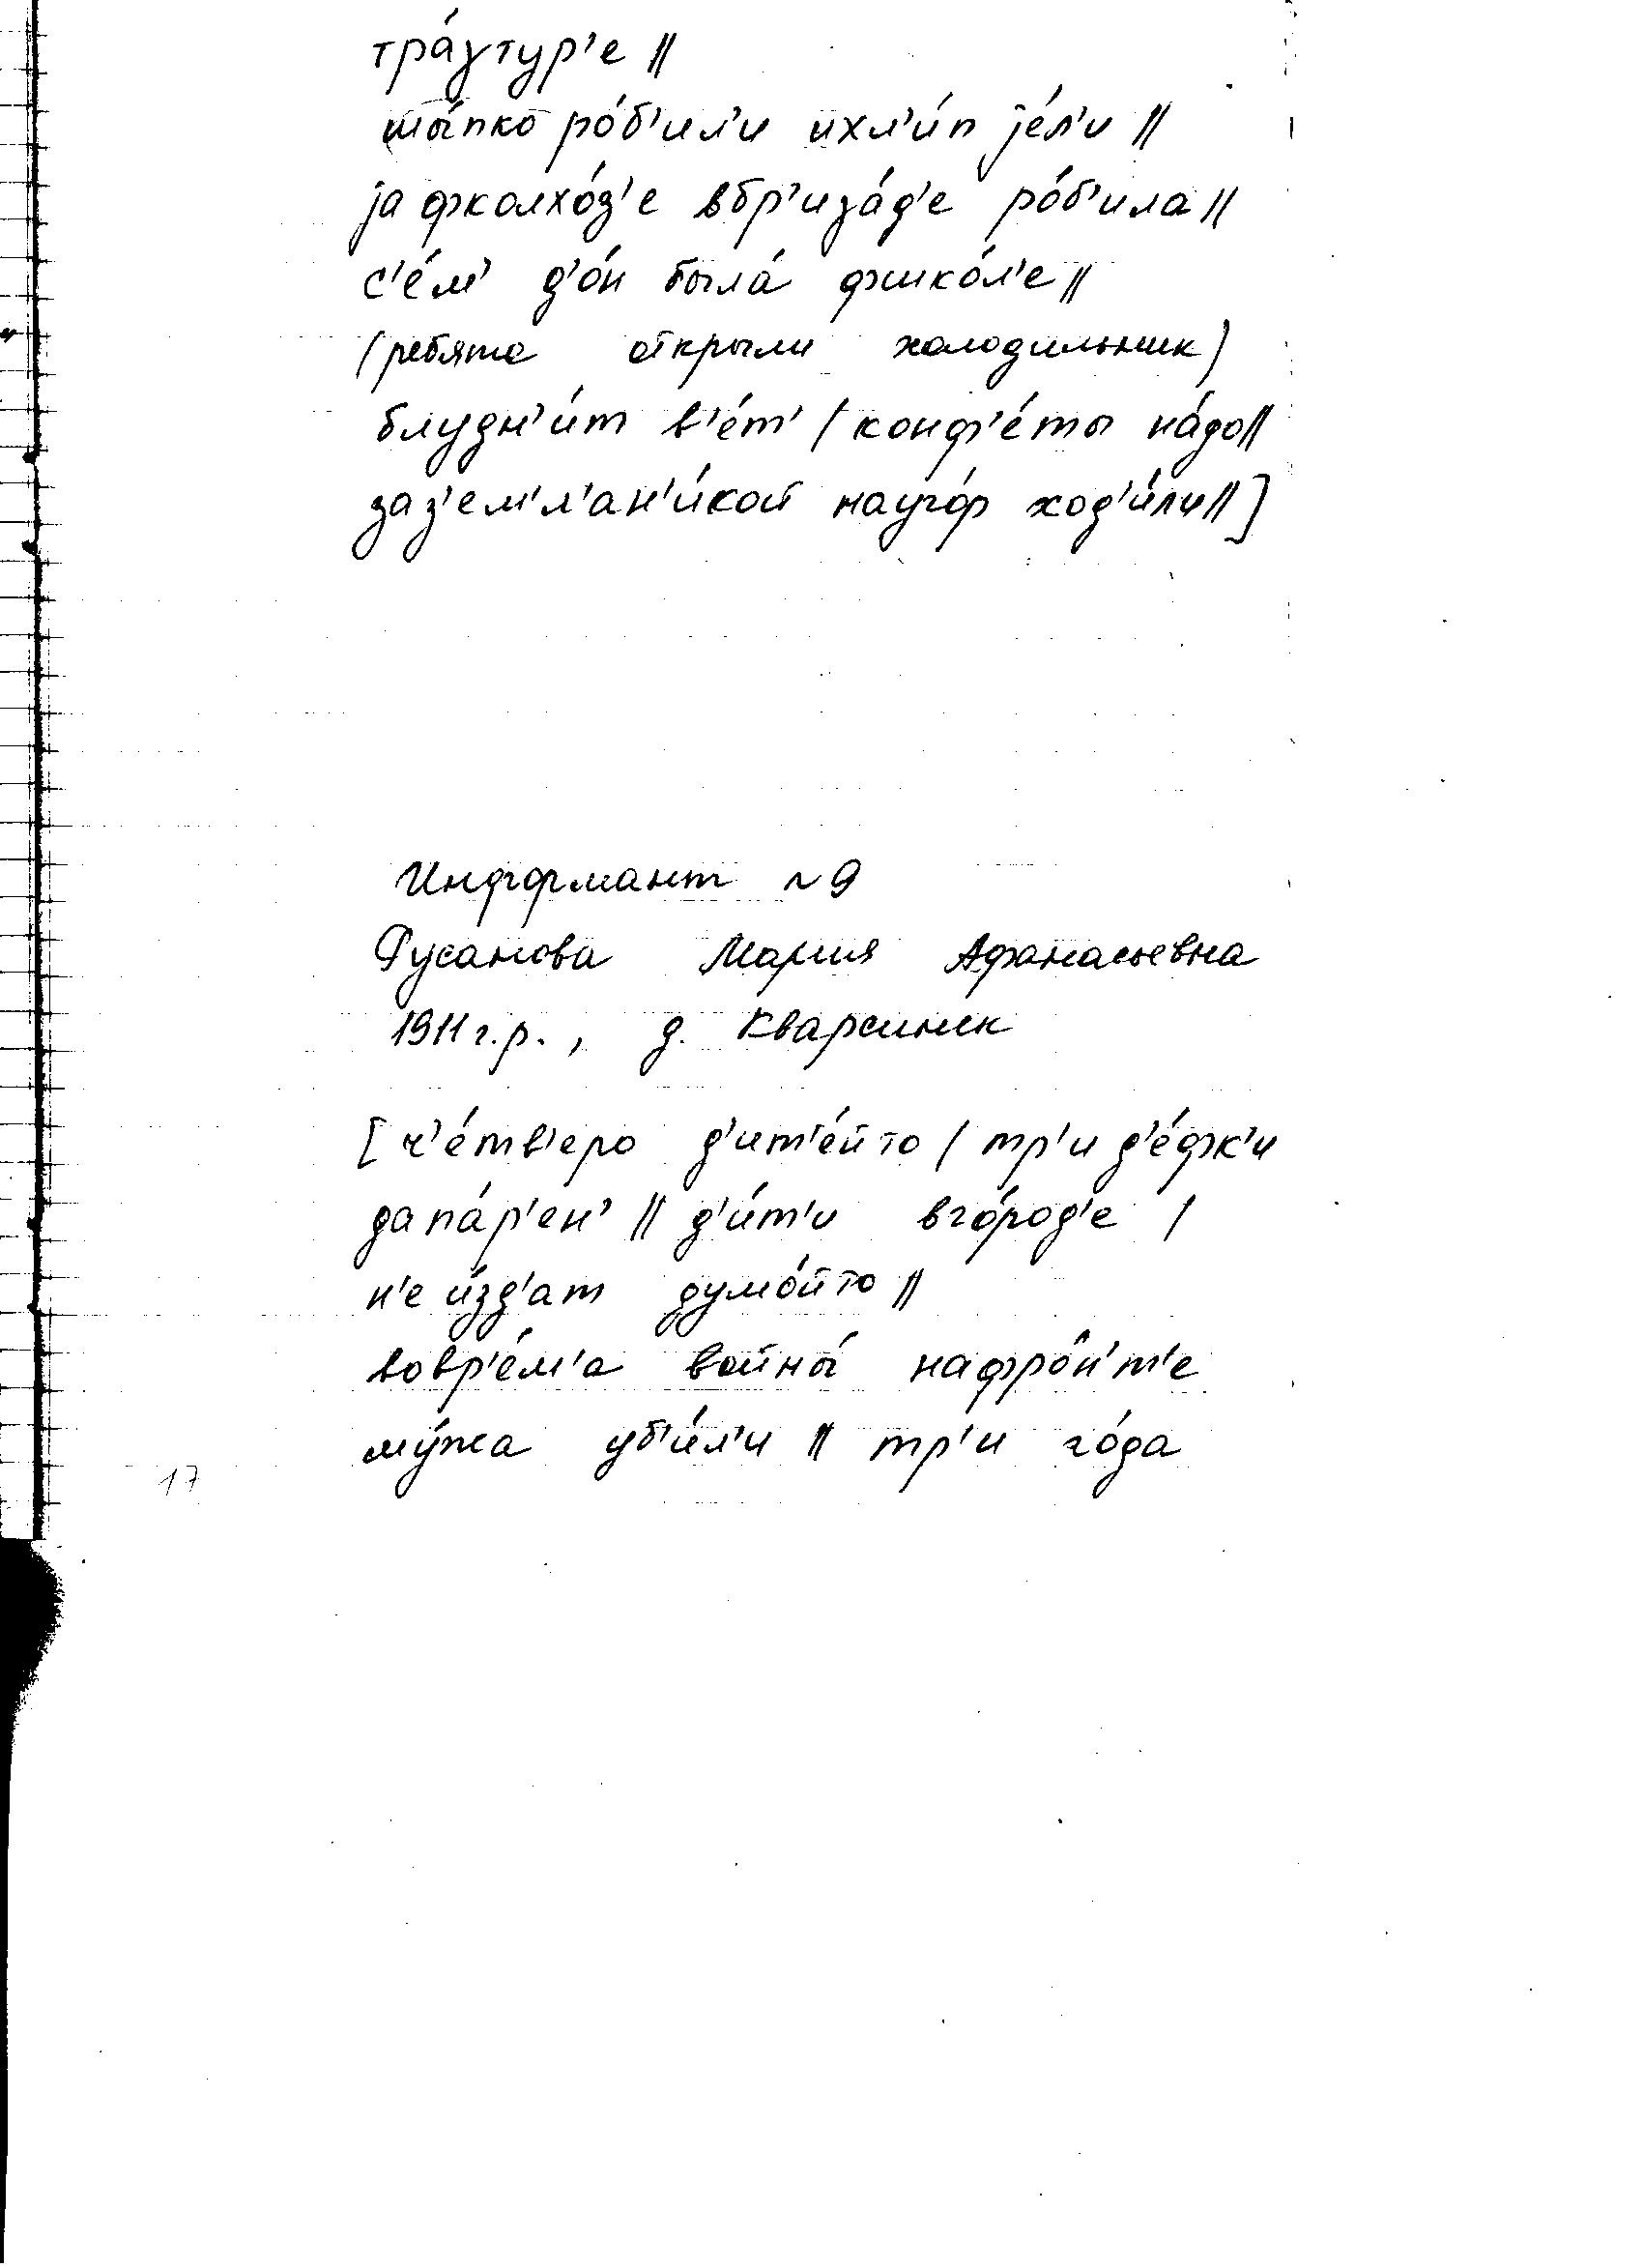 тра́утур'е ||
ты́пко ро́б'ил'и ихл'и́п jе́л'и ||
jа фколхо́з'е вбр'ига́д'е ро́б'ила ||
с'е́м' д'о́н была́ фшко́л'е ||
(ребята открыли холодильник)
блудн'и́т в'е́т' / конф'е́ты на́до ||
заз'ем'л'ан'и́кой науго́р ход'и́ли || ]
Информант №9
Русанова Мария Афанасьевна
1911 г.р., д.
[ч'е́тв'еро д'ит'е́йто / тр'и д'е́фк'и
дапа́р'ен' || д'и́т'и вго́род'е /
н'е и́зд'ат думо́йто ||
вовр'е́м'а войны́ нафро́н'т'е
му́жа уб'и́л'и || тр'и го́да
17